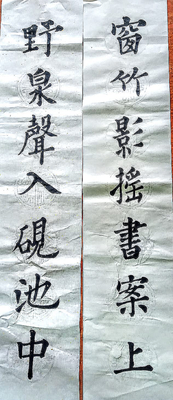 窗竹影摇書案上
野泉聲入硯池中